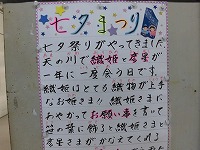 七夕まつり
七夕祭りがやってきました
天の川で織姫と彦星が
一年に一度会う日です
織姫はとても織物が上手
なお姫さま！織姫さまに
あやかってお願い事を書いて
笹の葉に飾ると織姫さまと
彦星さまがかなえてくれる